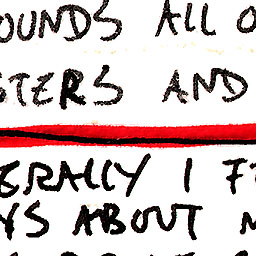 OUNDS ALL O
STERS AND
ERALLY I F
YS ABOUT